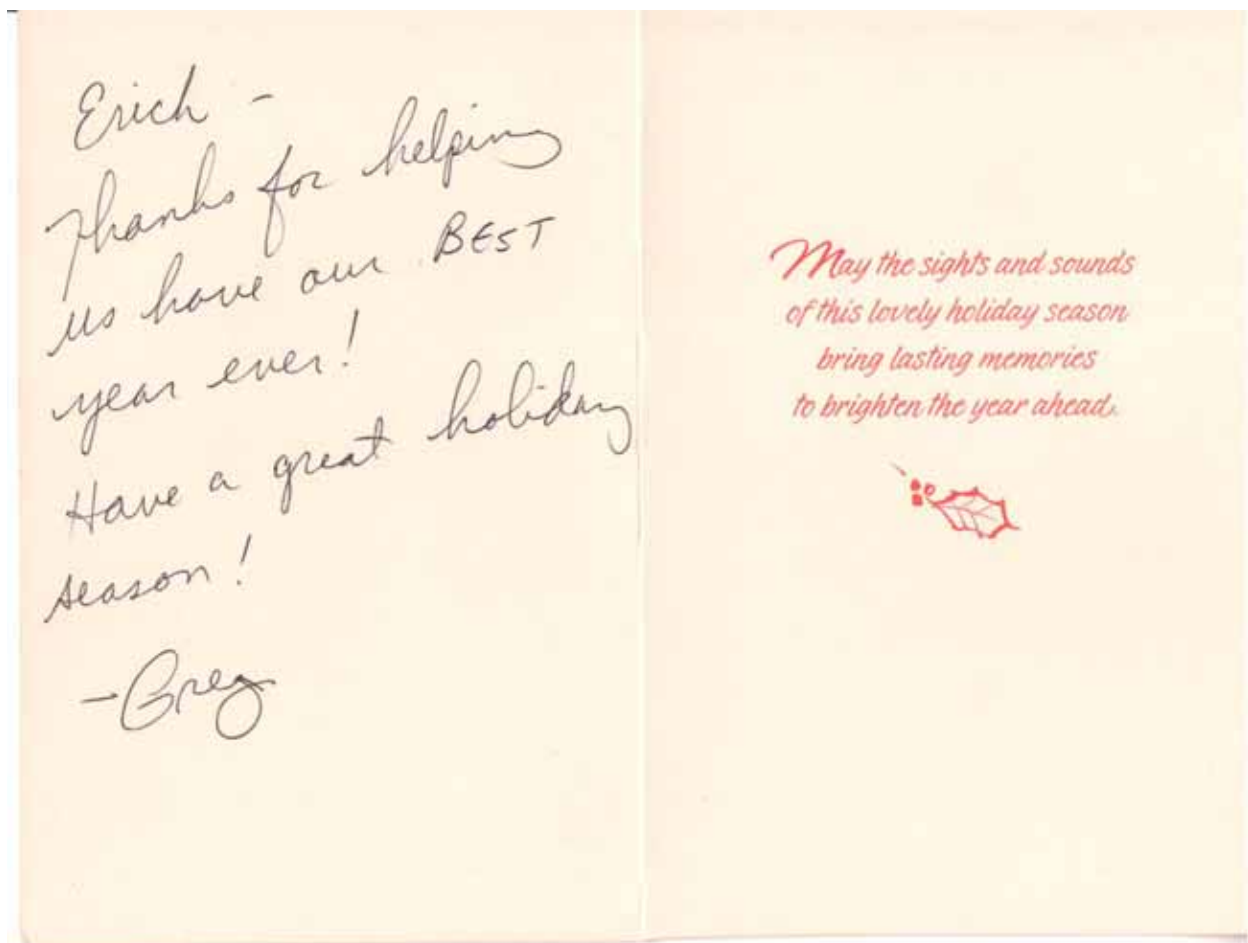 Erich -
Thanks for helping
us have our BEST
year ever!
Have a great holiday
season!
- Greg
May the sights and sounds
of this lovely holiday season
bring lasting memories
to brighten the year ahead.